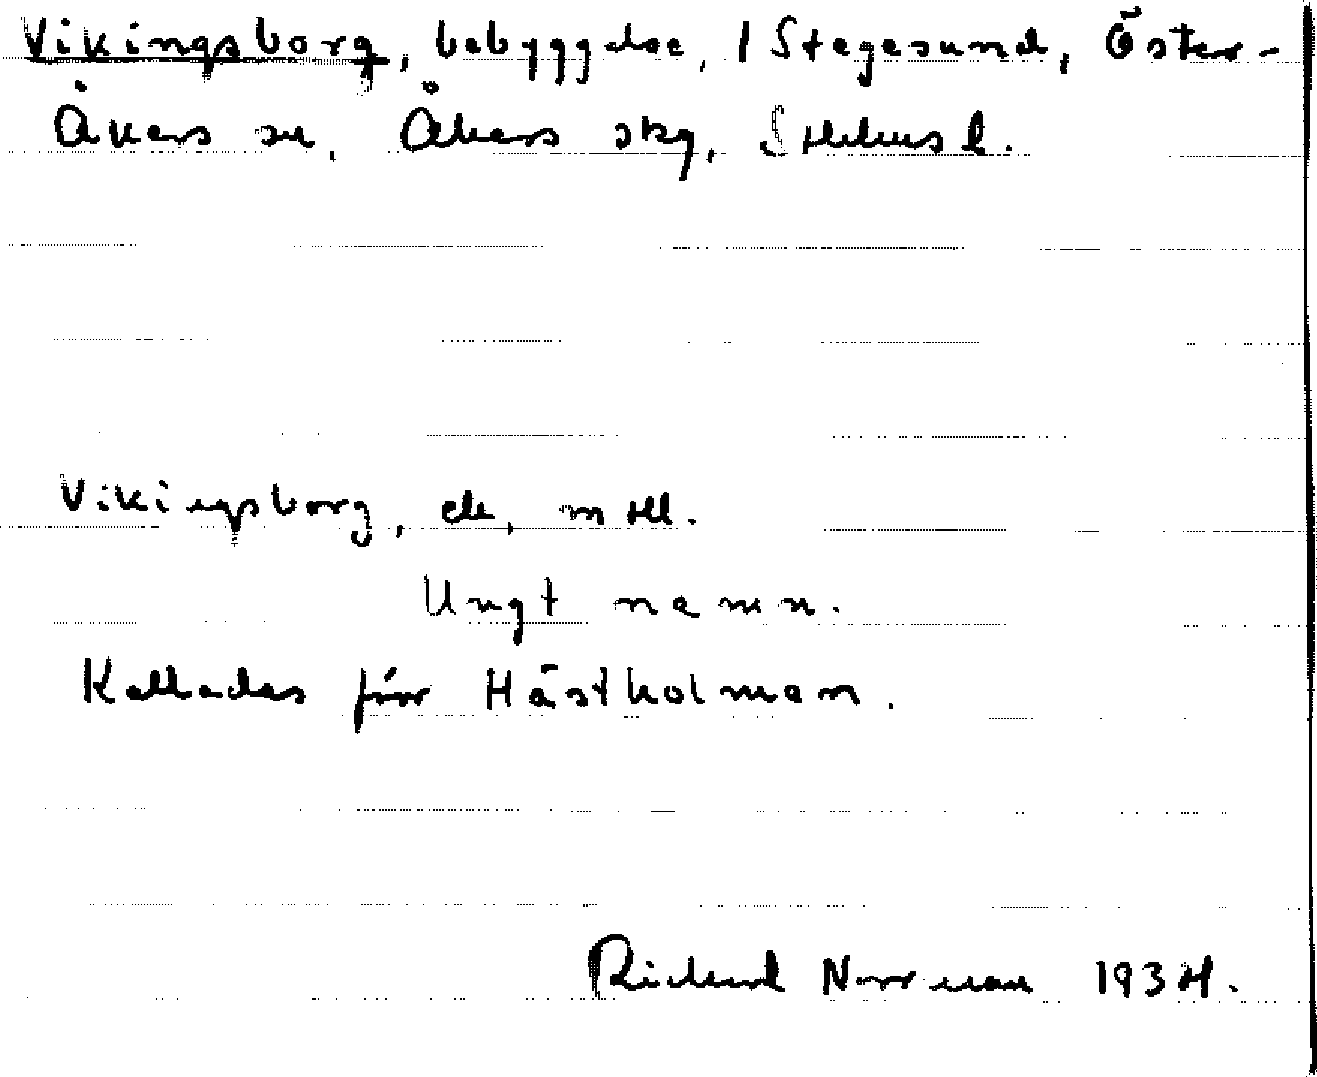 Vikingsborg, bebyggelse, 1 Stegesund, Öster-
Åkers sn, Åkers skg, Sthlms l.
Vikingsborg, de, m Ha.
Ungt namn.
Kallades förr Hästholmen.
Richard Norrman 1934.